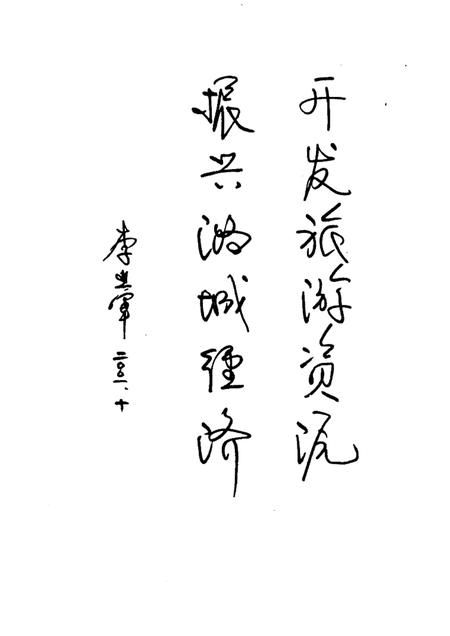 开发旅游资源
振兴潞城经济
李 军 二〇〇一.十